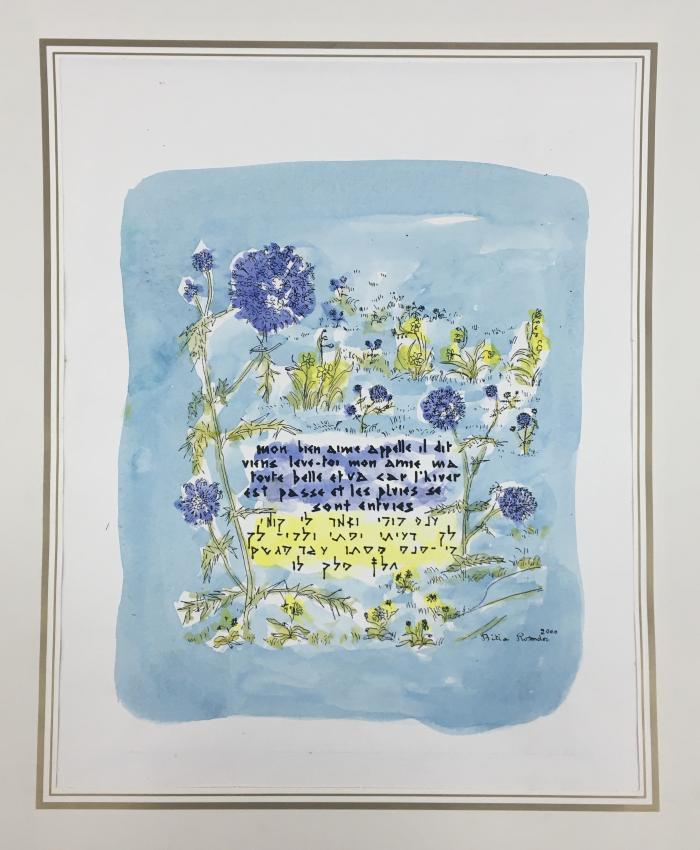 mon bien aime appelle il dit
viens leve-toi mon amie ma
toute belle et va car l'hiver
est passe et les pluies se
sont enfuies
ענה דודי ואמר לי קומי
לך רעיתי יפתי ולכי-לך
כי-הנה הסתו עבר הגשם
חלף הלך לו
2000